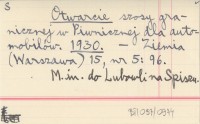 S
Otwarcie szosy gra-
nicznej w Piwnicznej dla auto-
mobilów. 1930. – Ziemia
(Warszawa) 15, nr 5: 96.
M.in. do Lubowli na Spiszu.